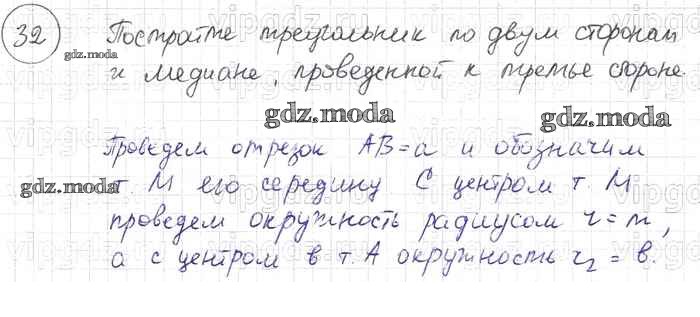 32 Постройте треугольник по двум сторонам
и медиане, проведенной к третье стороне.
gdz.moda
gdz.moda
gdz.moda
Проведем отрезок AB=a и обозначим
gdz.moda
т. М его середину С центром т. М
проведем окружность радиусом r=m,
а с центром в т. А окружность r₂ = b.